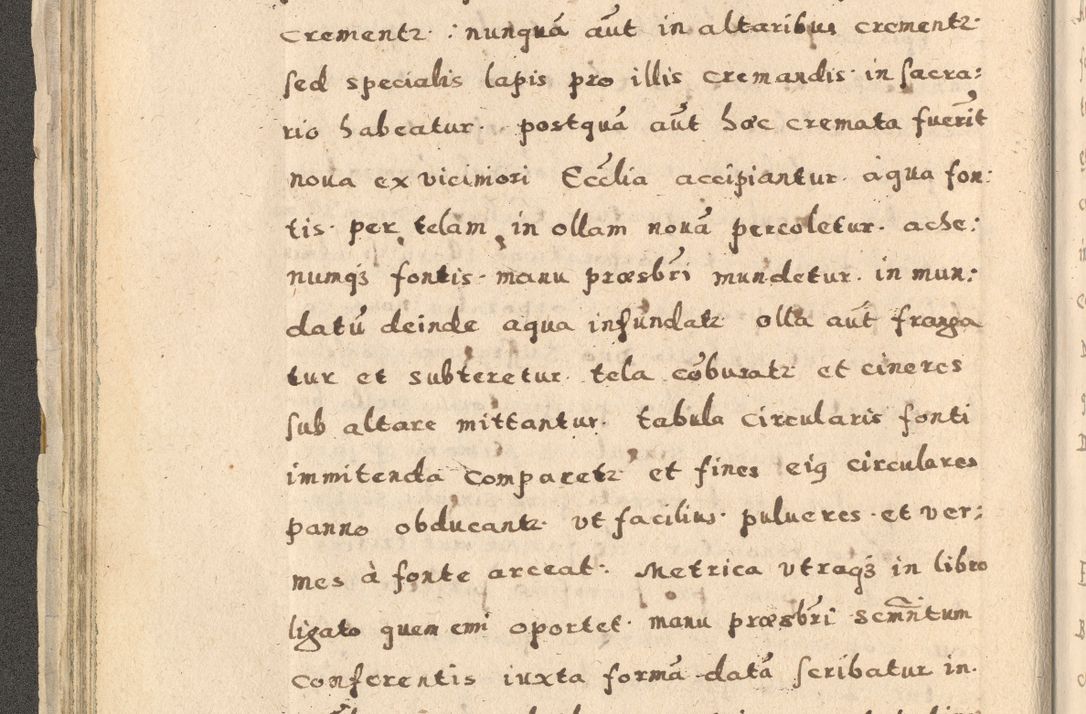 crementr. : nunquā aūt in altaribus crementr.
sed specialis lapis pro illis cremandis. in sacra:
rio habeatur. postquā aūt hæc cremata fuerīt
noua ex vicimori Eccl̄ia accipiantur. aqua fon:
tis. per telam in ollam nouā percoletur. ache:
numqȝ fontis. manu præsb̄ri mundetur. in mun:
datū deinde aqua infundatr olla aūt franga
tur et subteretur. tela cōburatr et cineres
sub altare mittantur. tabula circularis fonti
immitenda comparetr et fines eiꝰ circulares
panno obducantr. vt facilius. pulueres. et ver:
mes à fonte arceat. Metrica vtraqȝ in libro
ligato quem emi oportet. manu præsb̄ri scm̄ntum
conferentis iuxta formā datā scribatur in.